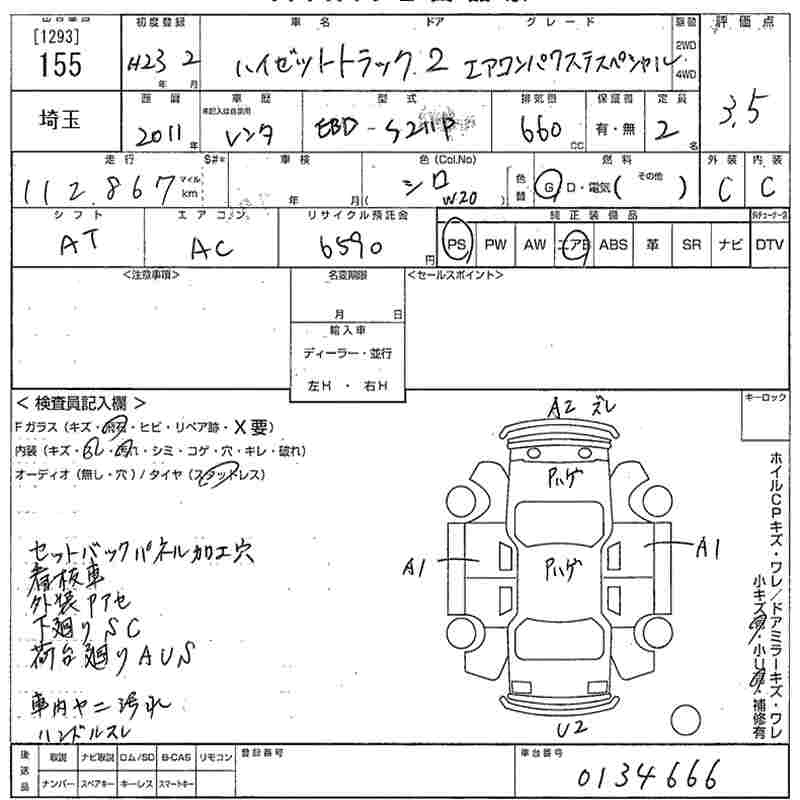 [1293]
155
埼玉
初度登録
H23 2
年 月
車名 ドア グレード
ハイゼットトラック 2 エアコンパワステスペシャル
駆動
2WD
4WD
評価点
3.5
西暦
2011
年
車歴
未記入は自家用
レンタ
型式
EBD-S211P
排気量
660
CC
保証書
有・無
定員
2
名
走行
112,867
マイル
km
S#*
車検
年 月
色 (Col.No)
シロ
W20
色替
燃料
G D・電気( その他 )
外装
C
内装
C
シフト
AT
エアコン
AC
リサイクル預託金
6590
円
純正装備品
PS PW AW エアB ABS 革 SR ナビ
DTV
<注意事項>
名変期限
月 日
輸入車
ディーラー・並行
左H ・ 右H
<セールスポイント>
キーロック
< 検査員記入欄 >
Fガラス (キズ・飛石・ヒビ・リペア跡・X要)
内装 (キズ・スレ・汚れ・シミ・コゲ・穴・キレ・破れ)
オーディオ (無し・穴) / タイヤ (スタッドレス)
セットバックパネル加工穴
看板車
外装Pアセ
下廻りSC
荷台廻りAUS
車内ヤニ汚れ
ハンドルスレ
A2 ズレ
Pハゲ
A1
Pハゲ
A1
U2
ホイルCPキズ・ワレ/ドアミラーキズ・ワレ
小キズ・小U・補修有
後送品
取説 ナビ取説 ロム/SD B-CAS リモコン
ナンバー スペアキー キーレス スマートキー
登録番号
車台番号
0134666